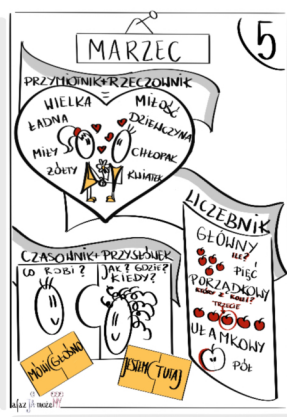 MARZEC
5
PRZYMIOTNIK+RZECZOWNIK
WIELKA MIŁOŚĆ
ŁADNA DZIEWCZYNA
MIŁY CHŁOPAK
ŻÓŁTY KWIATEK
LICZEBNIK
GŁÓWNY
ILE?
PIĘĆ
PORZĄDKOWY
KTÓRY Z KOLEI?
TRZECIE
UŁAMKOWY
PÓŁ
CZASOWNIK+PRZYSŁÓWEK
CO ROBI?
JAK? GDZIE?
KIEDY?
MÓWI GŁOŚNO
JESTEM TUTAJ